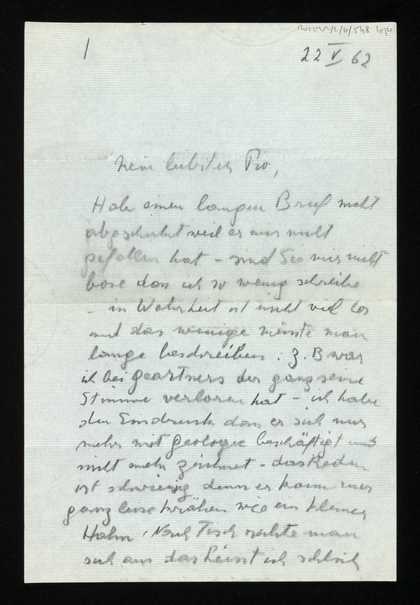 1
22 V 62
Mein liebster Pio,
Habe einen langen Brief nicht
abgeschickt weil er mir nicht
gefallen hat – sind Sie mir nicht
böse dass ich so wenig schreibe
– in Wahrheit ist nicht viel los
und das wenige müsste man
lange beschreiben. z. B war
ich bei Geartners der ganz seine
Stimme verloren hat – ich habe
den Eindruck dass er sich nur
mehr mit Geologie beschäftigt und
nicht mehr zeichnet – das Reden
ist schwierig denn er kann nur
ganz leise krähen wie ein kleiner
Hahn. Nach Tisch ruhte man
sich aus das heisst ich schlief